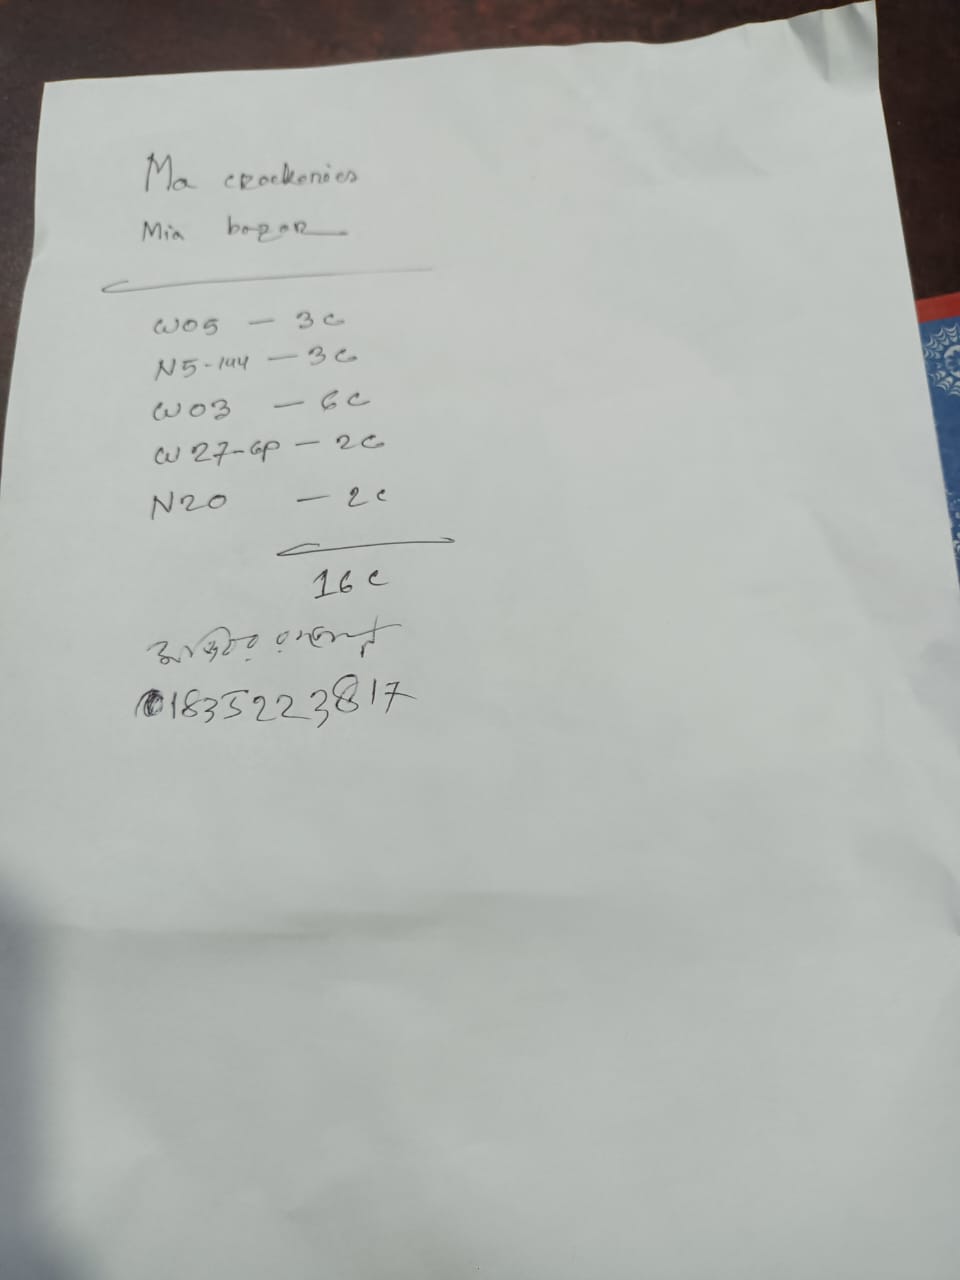 Ma crockeries
Mia bazar
W05 - 3c
N5-144 - 3c
W03 - 6c
W27-GP - 2c
N20 - 2c
16c
01835223817